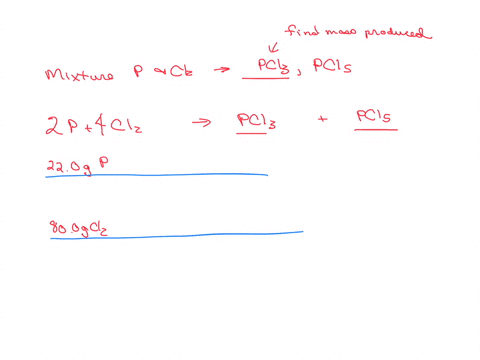 find mass produced
Mixture P & Cl₂ → PCl₃, PCl₅
2 P + 4 Cl₂ → PCl₃ + PCl₅
22.0g P
80.0g Cl₂